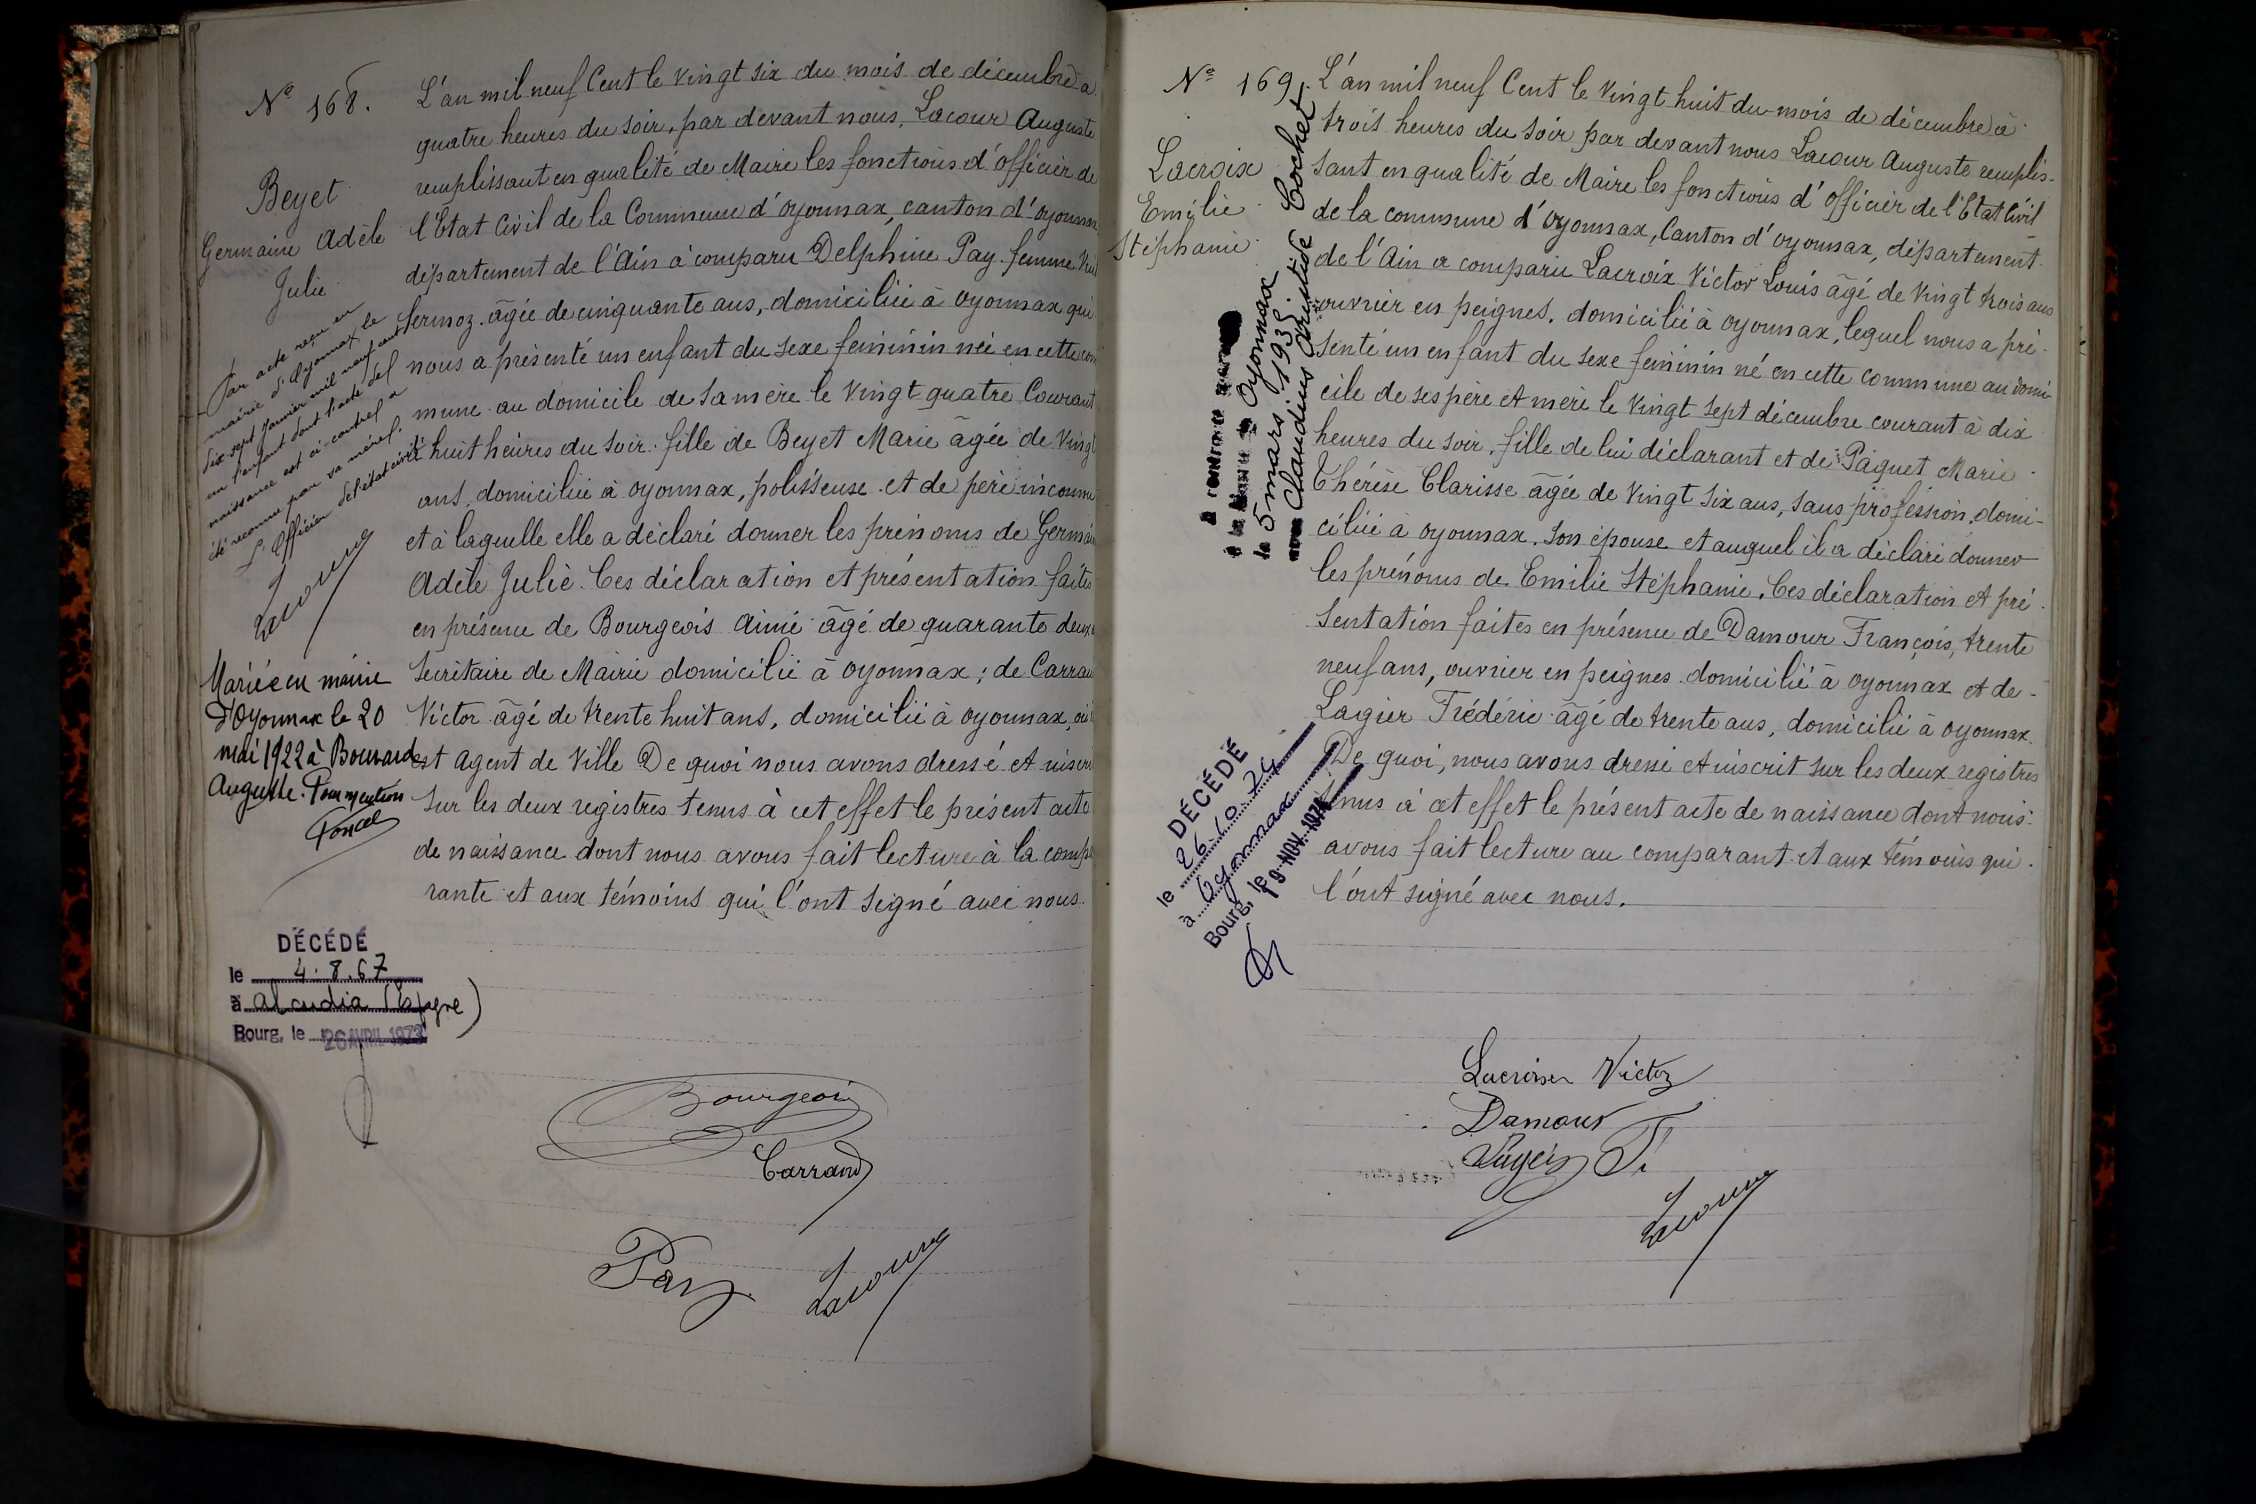 Nº 168.
Beyet
Germaine Adèle
Julie
Par acte reçu en
mairie d'Oyonnax le
dix sept janvier mil neuf cent
un l'enfant dont l'acte de
naissance est ci-contre a
été reconnu par sa mère.
L'Officier de l'état civil
Lacour
Mariée en mairie
d'Oyonnax le 20
mai 1922 à Bouvard
Auguste. Pour mention
Poncet
DÉCÉDÉ
le 4.8.67
à Alcudia (Espagne)
Bourg, le 26 AVRIL 1973
L'an mil neuf Cent le vingt six du mois de décembre à
quatre heures du soir, par devant nous, Lacour Auguste
remplissant en qualité de Maire les fonctions d'officier de
l'État Civil de la Commune d'oyonnax, canton d'oyonnax
département de l'Ain à comparu Delphine Pay femme
Sermoz. âgée de cinquante ans, domiciliée à oyonnax qui
nous a présenté un enfant du sexe féminin née en cette com
mune au domicile de sa mère le vingt quatre Courant
à huit heures du soir. fille de Beyet Marie âgée de vingt
ans, domiciliée à oyonnax, polisseuse et de père inconnu
et à laquelle elle a déclaré donner les prénoms de Germaine
Adèle Julie. Ces déclaration et présentation faites
en présence de Bourgeois Aimé âgé de quarante deux
Secrétaire de Mairie domicilié à oyonnax ; de Carrand
Victor âgé de trente huit ans, domicilié à oyonnax, où il
est agent de Ville De quoi nous avons dressé et inscrit
sur les deux registres tenus à cet effet le présent acte
de naissance dont nous avons fait lecture à la compa
rante et aux témoins qui l'ont signé avec nous.
Bourgeois
Carrand
Pay Lacour
Nº 169.
Lacroix
Emilie
Stéphanie
a contracté mariage
à la Mairie de Oyonnax
le 5 mars 1938
avec Claudius Aristide Cochet
DÉCÉDÉ
le 26.10.74
à Oyonnax
Bourg, le 19 NOV. 1974
L'an mil neuf Cent le vingt huit du mois de décembre à
trois heures du soir par devant nous Lacour Auguste remplis-
sant en qualité de Maire les fonctions d'officier de l'Etat Civil
de la commune d'Oyonnax, Canton d'oyonnax, département
de l'Ain a comparu Lacroix Victor Louis âgé de vingt trois ans
ouvrier en peignes. domicilié à oyonnax, lequel nous a pré-
senté un enfant du sexe féminin né en cette commune au domi
cile de ses père et mère le vingt sept décembre courant à dix
heures du soir. fille de lui déclarant et de Paquet Marie
Thérèse Clarisse âgée de vingt six ans, sans profession. domi-
ciliée à oyonnax. Son épouse et auquel il a déclaré donner
les prénoms de Emilie Stéphanie. Ces déclaration et pré
sentation faites en présence de Damour François, trente
neuf ans, ouvrier en peignes domicilié à oyonnax et de-
Lagier Frédéric âgé de trente ans, domicilié à oyonnax.
De quoi, nous avons dressé et inscrit sur les deux registres
tenus à cet effet le présent acte de naissance dont nous
avons fait lecture au comparant et aux témoins qui
l'ont signé avec nous.
Lacroix Victor
Damour
F.
Lacour